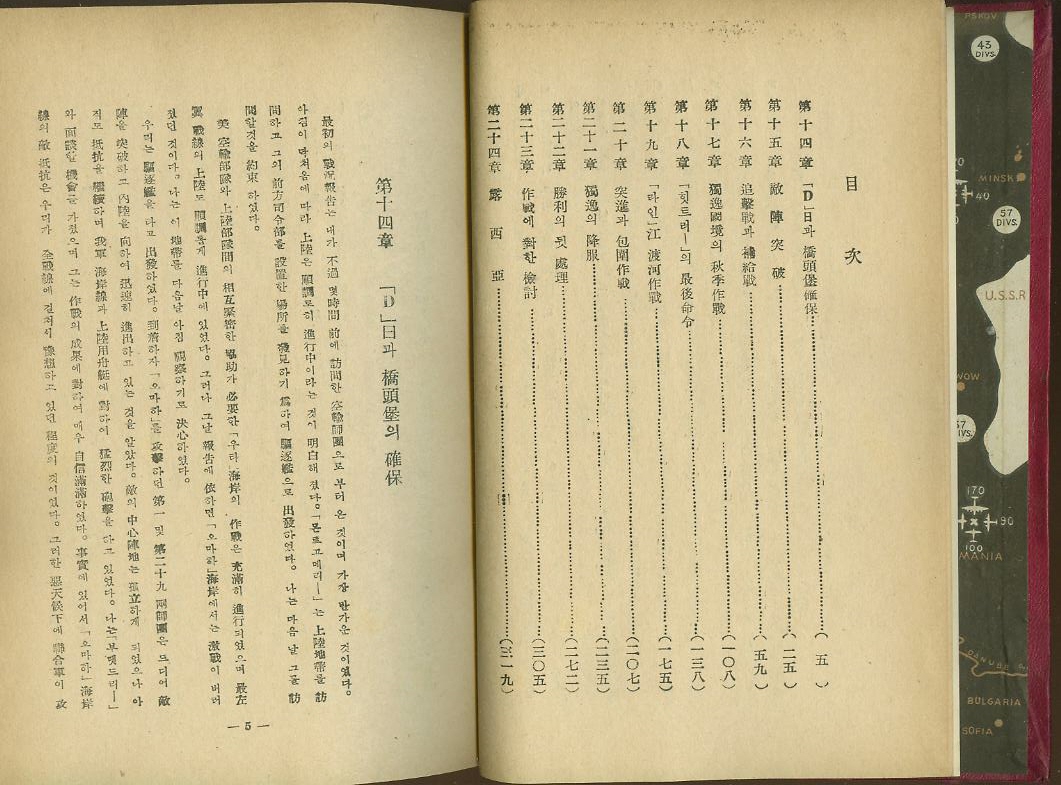 目次
第十四章 「D」日과 橋頭堡確保 (五)
第十五章 敵陣突破 (二五)
第十六章 追擊戰과 補給戰 (五九)
第十七章 獨逸國境의 秋季作戰 (一〇八)
第十八章 「힛트러ー」의 最後命令 (一三八)
第十九章 「라인」江 渡河作戰 (一七五)
第二十章 突進과 包圍作戰 (二〇七)
第二十一章 獨逸의 降服 (二三五)
第二十二章 勝利의 뒷 處理 (二七二)
第二十三章 作戰에 對한 檢討 (三〇五)
第二十四章 露西亞 (三一九)
第十四章 「D」日과 橋頭堡의 確保
最初의 戰況報告는 내가 不過 몇時間 前에 訪問한 空輸師團으로 부터 온 것이며 가장 반가운 것이였다。
아침이 닥쳐옴에 따라 上陸은 順調로히 進行中이라는 것이 明白해 졌다。「몬트고메리ー」는 上陸地帶를 訪
問하고 그의 前方司令部를 設置한 場所를 發見하기 爲하여 驅逐艦으로 出發하였다。 나는 다음 날 그를 訪
問할것을 約束 하였다。
美 空輸部隊와 上陸部隊間의 相互緊密한 協助가 必要한 「우타」海岸의 作戰은 充滿히 進行되였으며 最左
翼 戰線의 上陸도 順調롭게 進行中에 있었다。 그러나 그날 報告에 依하면 「오마하」海岸에서는 激戰이 버러
졌던 것이다。 나는 이 地帶를 다음날 아침 視察하기로 決心하였다。
우리는 驅逐艦을 타고 出發하였다。 到着하자 「오마하」를 攻擊하던 第一 및 第二十九 兩師團은 드디어 敵
陣을 突破하고 內陸을 向하여 迅速히 進出하고 있는 것을 알았다。 敵의 中心陣地는 孤立하게 되였으나 아
직도 抵抗을 繼續하며 我軍 海岸線과 上陸用舟艇에 對하여 猛烈한 砲擊을 하고 있었다。 나는 「부랫드리ー」
와 面談할 機會를 가졌으며 그는 作戰의 成果에 對하여 매우 自信滿滿하였다。 事實에 있어서 「오마하」 海岸
線의 敵 抵抗은 우리가 全戰線에 걸쳐서 豫想하고 있던 程度의 것이였다。 그러한 惡天候下에 聯合軍이 攻
— 5 —
PSKOV
43 DIVS.
MINSK
40
57 DIVS.
U.S.S.R
170
90
100
DANUBE
BULGARIA
SOFIA